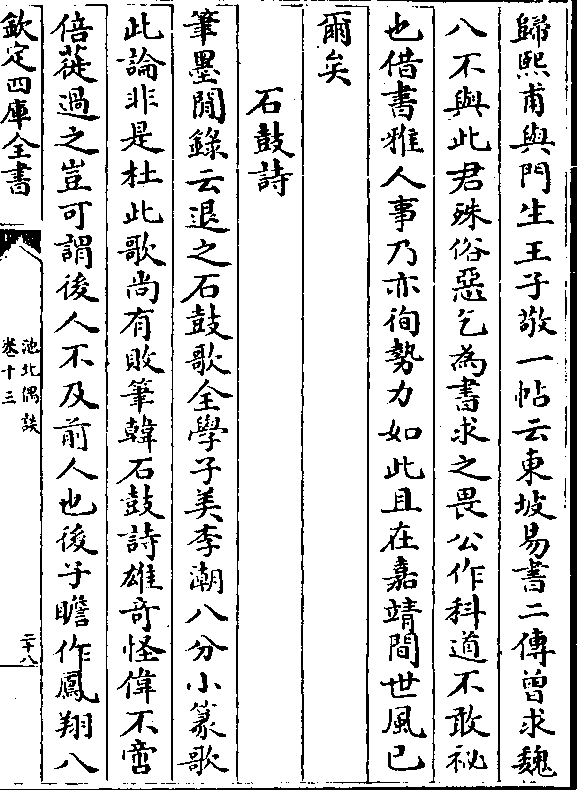 歸熙甫與門生王子敬一帖云東坡易書二傳曾求魏
八不與此君殊俗惡乞為書求之畏公作科道不敢祕
也借書雅人事乃亦徇勢力如此且在嘉靖間世風已
爾矣
石鼓詩
筆墨閒錄云退之石鼓歌全學子美李潮八分小篆歌
此論非是杜此歌尚有敗筆韓石鼓詩雄奇怪偉不啻
倍蓰過之豈可謂後人不及前人也後子瞻作鳳翔八
欽定四庫全書
池北偶談
卷十三
二十八